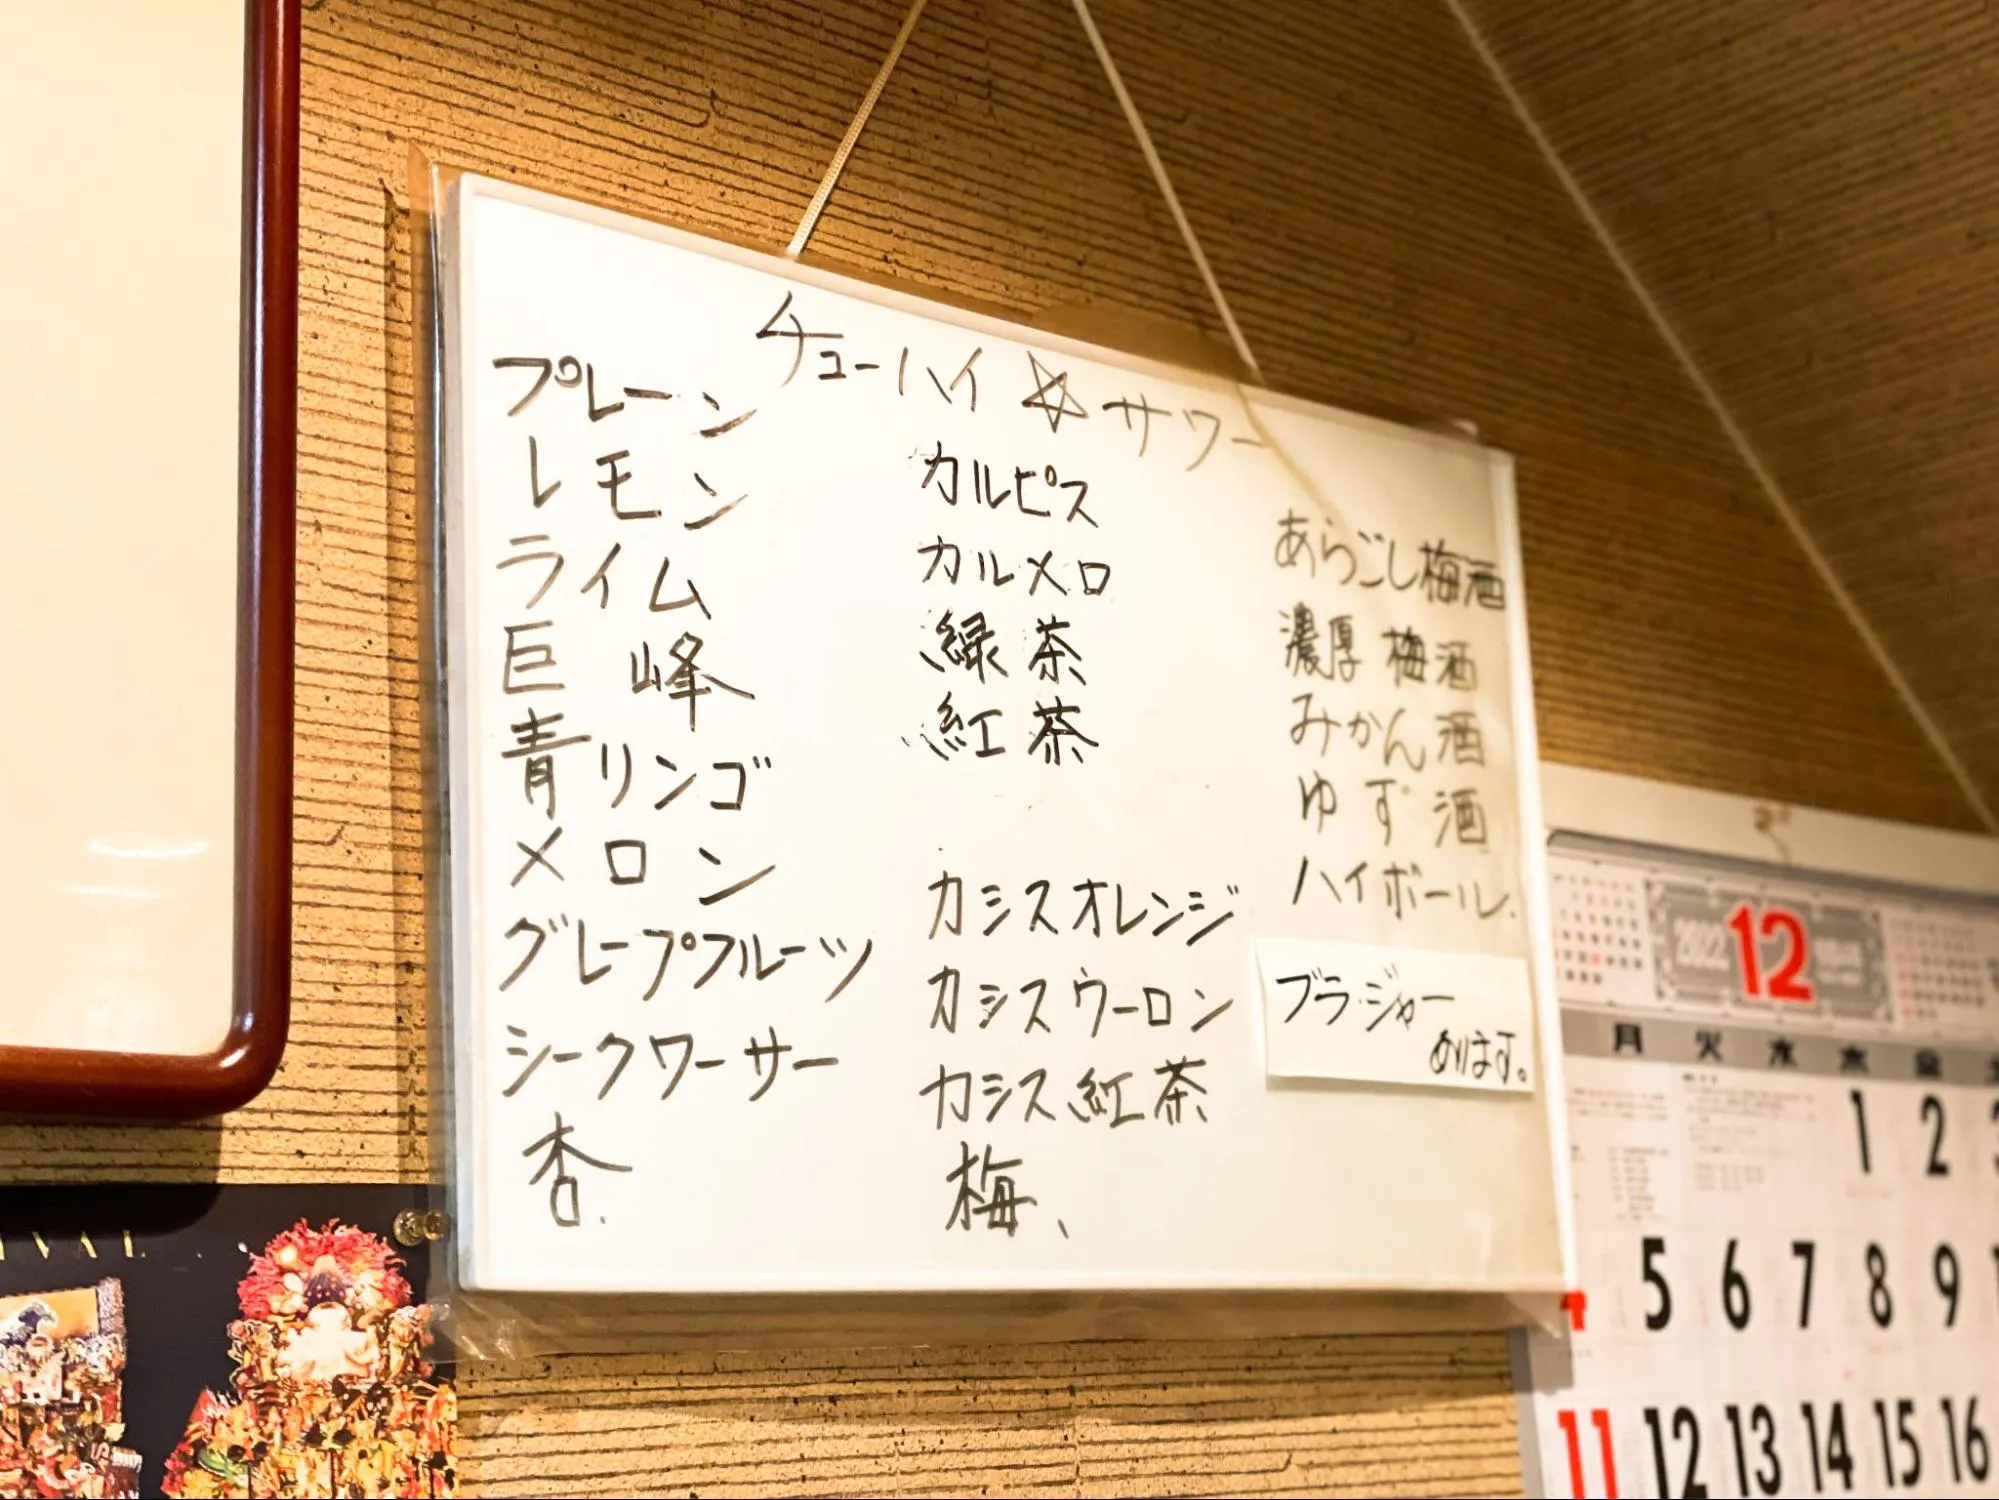 チューハイ☆サワー
プレーン
レモン
ライム
巨峰
青リンゴ
メロン
グレープフルーツ
シークワーサー
杏.
カルピス
カルメロ
緑茶
紅茶
カシスオレンジ
カシスウーロン
カシス紅茶
梅、
あらごし梅酒
濃厚梅酒
みかん酒
ゆず酒
ハイボール.
ブラ・ジャー
めります。
2022 12
月 火 水 木 金 土
1 2 3
4 5 6 7 8 9
11 12 13 14 15 16
IVAL